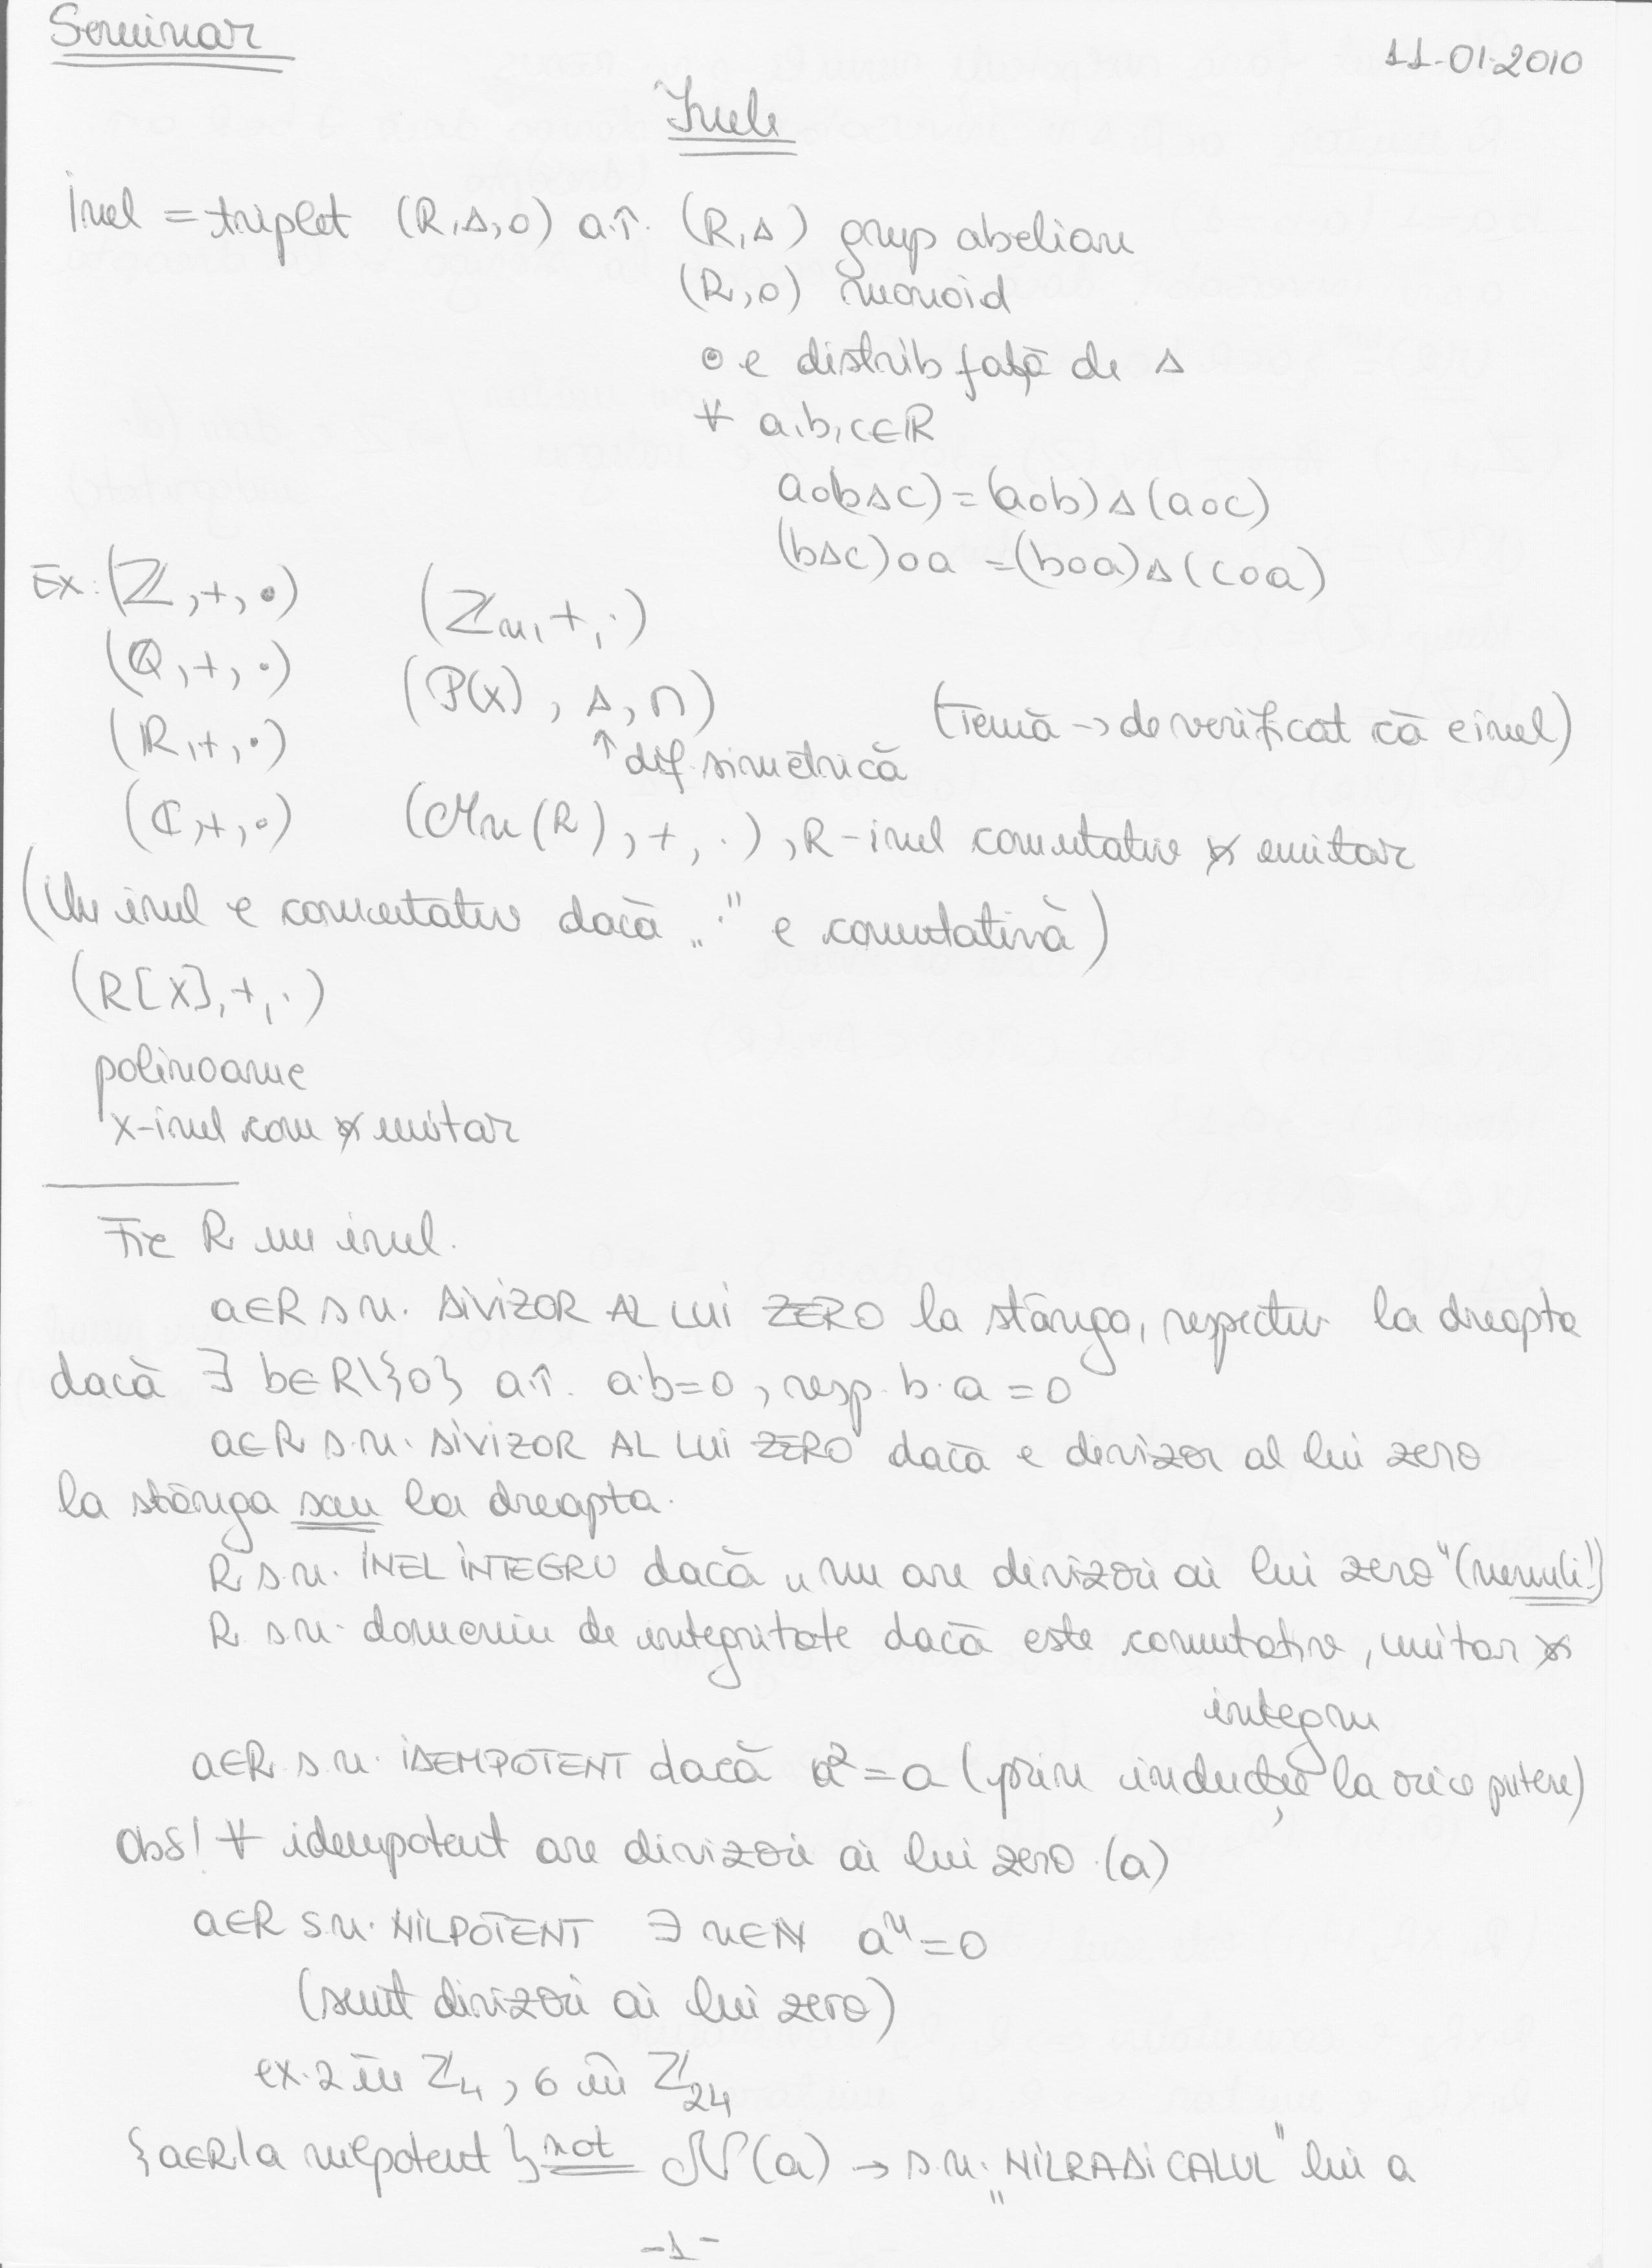 Seminar
11-01-2010
Inele
Inel = triplet (R,Δ,o) a.î. (R,Δ) grup abelian
(R,o) monoid
o e distrib față de Δ
∀ a,b,c∈R
ao(bΔc)=(aob)Δ(aoc)
(bΔc)oa =(boa)Δ(coa)
Ex: (ℤ,+,·) (ℤn,+,·)
(ℚ,+,·) (P(x), Δ,∩) (Temă → de verificat că e inel)
(ℝ,+,·) ↑ dif. simetrică
(ℂ,+,·) (Mn(R),+,·), R-inel comutativ și unitar
(Un inel e comutativ dacă „·” e comutativă)
(R[X],+,·)
polinoame
x-inel com și unitar
Fie R un inel.
a∈R s.n. DIVIZOR AL LUI ZERO la stânga, respectiv la dreapta
dacă ∃ b∈R\{0} a.î. a·b=0, resp. b·a=0
a∈R s.n. DIVIZOR AL LUI ZERO dacă e divizor al lui zero
la stânga sau la dreapta.
R s.n. INEL INTEGRU dacă „nu are divizori ai lui zero” (nenuli!)
R s.n. domeniu de integritate dacă este comutativ, unitar și
integru
a∈R s.n. IDEMPOTENT dacă a²=a (prin inducție la orice putere)
Obs! ∀ idempotent are divizori ai lui zero (a)
a∈R s.n. NILPOTENT ∃ n∈ℕ aⁿ=0
(sunt divizori ai lui zero)
ex. 2 în ℤ4, 6 în ℤ24
{a∈R|a nilpotent} not= N(a) → s.n. „NILRADICALUL” lui a
-1-